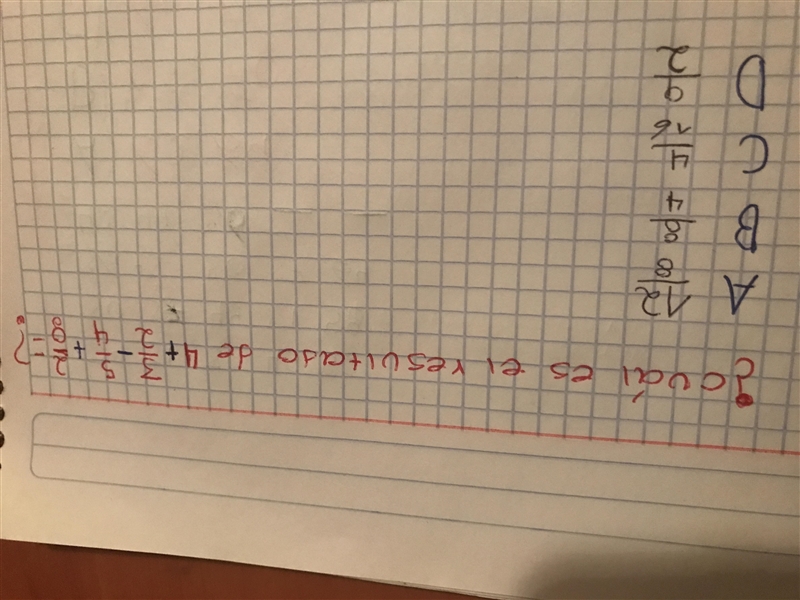 ¿cuál es el resultado de 4 + 3/2 - 5/4 + 2/8 = ?
A 12/8
B 8/4
C 4/16
D 9/2